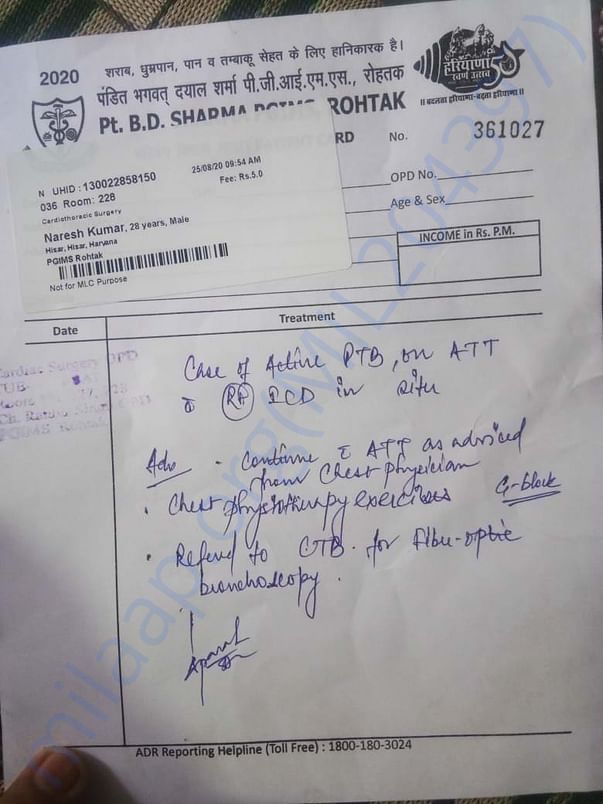 2020
शराब, धुम्रपान, पान व तम्बाकू सेहत के लिए हानिकारक है।
पंडित भगवत् दयाल शर्मा पी.जी.आई.एम.एस., रोहतक
हरियाणा
स्वर्ण उत्सव
Pt. B.D. SHARMA PGIMS, ROHTAK
॥ बदलता हरियाणा-बढ़ता हरियाणा ॥
RD No. 361027
N UHID : 130022858150
25/08/20 09:54 AM
036 Room: 228
Fee: Rs.5.0
Cardiothoracic Surgery
Naresh Kumar, 28 years, Male
Hisar, Hisar, Harvana
PGIMS Rohtak
Not for MLC Purpose
OPD No.
Age & Sex
INCOME in Rs. P.M.
Date
Treatment
Cardiac Surgery OPD
PGIMS Rohtak
Case of Active PTB, on ATT
c̄ Rt ICD in situ
Adv
- Continue c̄ ATT as adviced
from Chest physician
. Chest physiotherapy exercises
G-block
. Referred to CTB. for Fibre-optic
bronchoscopy.
ADR Reporting Helpline (Toll Free) : 1800-180-3024
milaap.org(MIL204397)